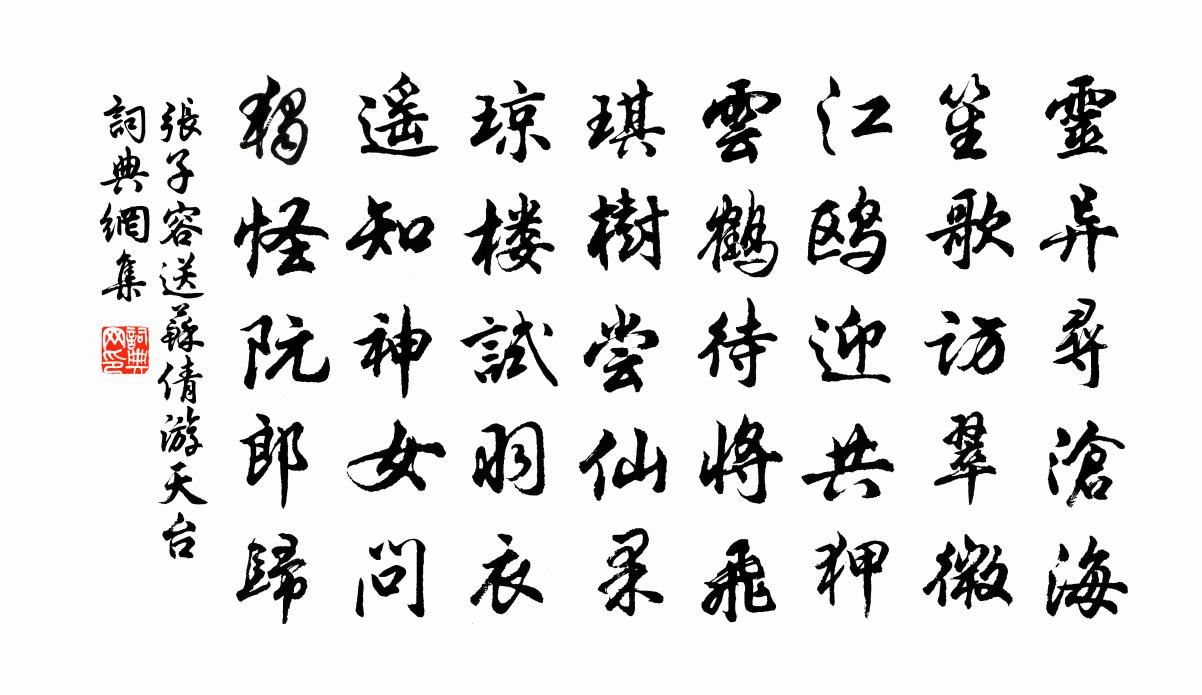 靈异尋滄海
笙歌访翠微
江鸥迎共狎
雲鶴待将飛
琪樹尝仙果
琼楼試羽衣
遥知神女问
獨怪阮郎歸
張子容送蘇倩游天台
詞典網集
詞典网印